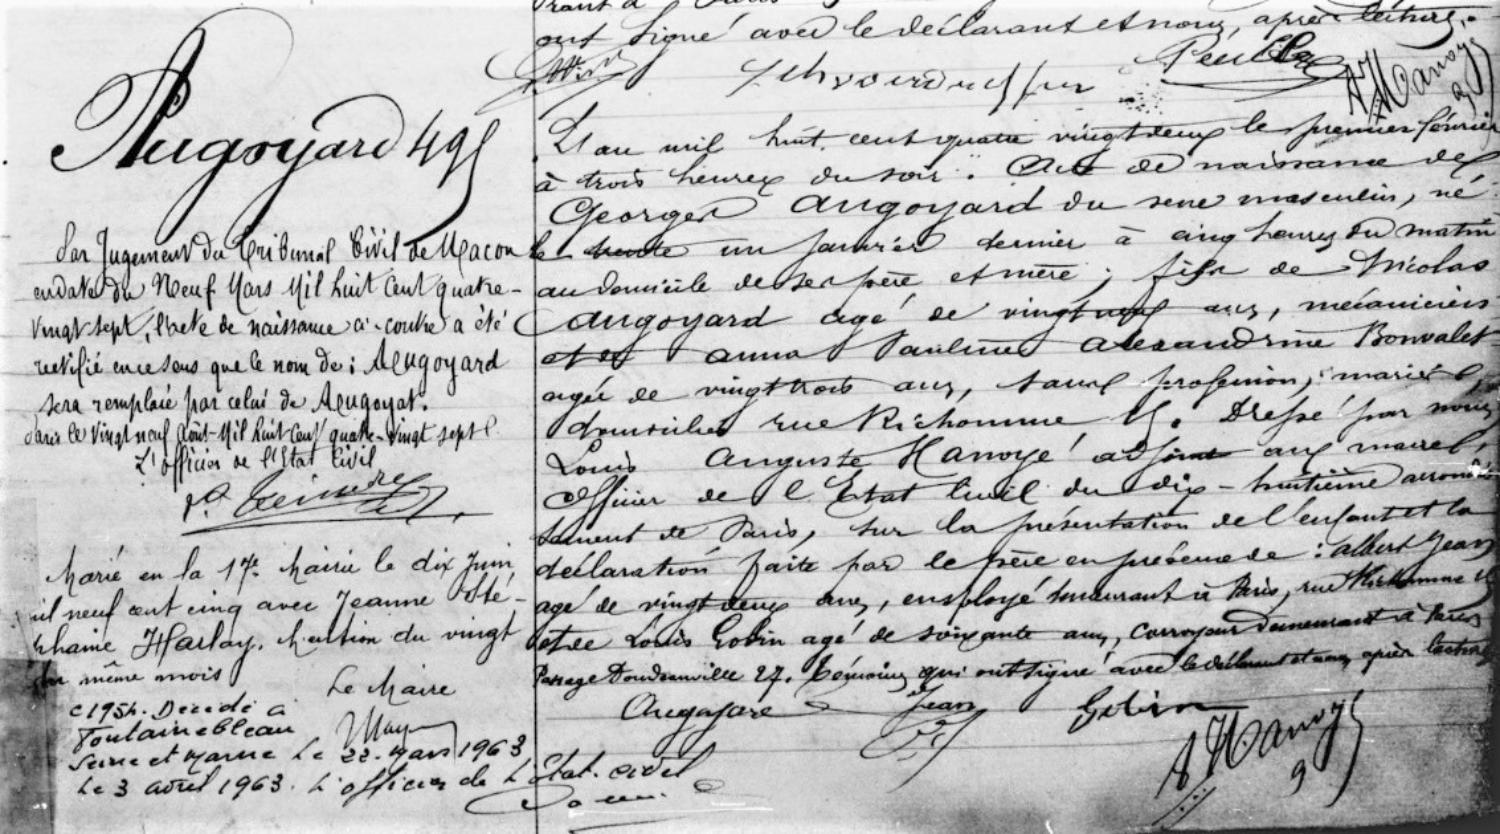 ont signé avec le déclarant et nous, après lecture.
Augoyard 495
Par Jugement du Tribunal Civil de Macon
en date du Neuf Mars Mil huit Cent quatre-
vingt sept, l'acte de naissance ci-contre a été
rectifié en ce sens que le nom de : Augoyard
sera remplacé par celui de Augoyat.
Paris le Vingt neuf Août Mil huit Cent quatre-vingt sept
L'officier de l'Etat Civil
Marié en la 17e Mairie le dix Juin
mil neuf cent cinq avec Jeanne Sté-
phanie Harlay. Mention du vingt
du même mois
Le Maire
c 1954. Décédé à
Fontainebleau
Seine et Marne le 22. Mars 1963
Le 3 avril 1963. L'officier de l'Etat. civil
L'an mil huit cent quatre vingt deux le premier février
à trois heures du soir. Acte de naissance de
Georges Augoyard du sexe masculin, né
le trente un janvier dernier à cinq heures du matin
au domicile de ses père et mère ; fils de Nicolas
Augoyard agé de vingt neuf ans, mécanicien
et de Anna Pauline Alexandrine Bonvalet
agée de vingt trois ans, sans profession, mariés,
domiciliés rue Richomme 15. Dressé par nous
Louis Auguste Hanoyé adjoint au maire,
officier de l'Etat Civil du dix-huitième arrondis
sement de Paris, sur la présentation de l'enfant et la
déclaration faite par le père en présence de : Albert Jean
agé de vingt deux ans, employé demeurant à Paris, rue Richomme 15
et de Louis Gobin agé de soixante ans, corroyeur demeurant à Paris
Passage Doudeauville 27. Témoins qui ont signé avec le déclarant et nous après lecture
Augoyard Jean Gobin
A Hanoyé